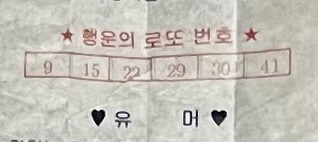 ★ 행운의 로또 번호 ★
9 15 22 29 30 41
♥ 유 머 ♥